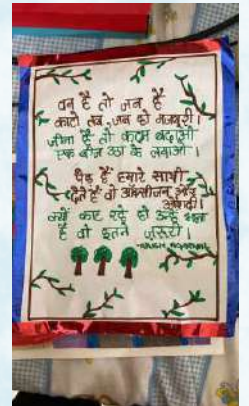 वन है तो जन है
काटो तब, जब हो मजबूरी।
जीना है तो कदम बढ़ाओ
एक बीज उठा के लगाओ।
पेड़ हैं हमारे साथी
देते हैं वो ऑक्सीजन और
क्यों काट रहे हो उन्हें
है वो इतने ज़रूरी।